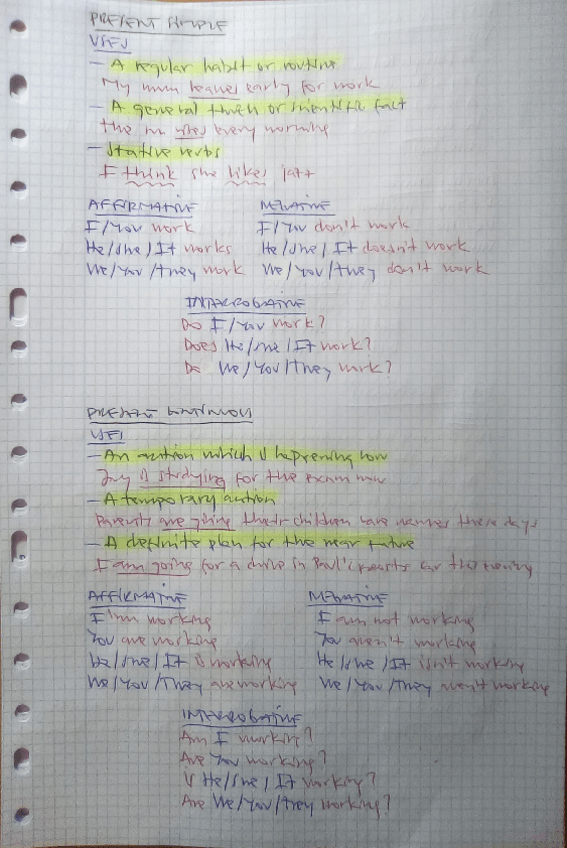 PRESENT SIMPLE
USES
- A regular habit or routine
My mum leaves early for work
- A general truth or scientific fact
the sun rises every morning
- Stative verbs
I think she likes jazz
AFFIRMATIVE NEGATIVE
I/You work I/You don't work
He/she/It works He/she/It doesn't work
We/You/they work We/You/they don't work
INTERROGATIVE
Do I/You work?
Does He/she/It work?
Do We/You/they work?
PRESENT CONTINUOUS
USES
- An action which is happening now
is studying for the exam now
- A temporary action
Parents are giving their children rare names these days
- A definite plan for the near future
I am going for a drive in Paul's car this evening
AFFIRMATIVE NEGATIVE
I'm working I am not working
You are working You aren't working
He/she/It is working He/she/It isn't working
We/You/They are working We/You/they aren't working
INTERROGATIVE
Am I working?
Are You working?
Is He/she/It working?
Are We/You/they working?